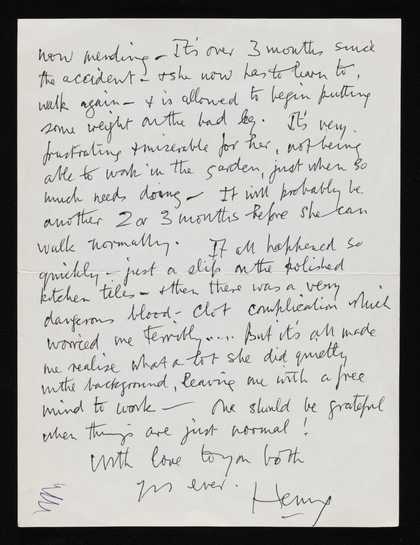 now mending – It's over 3 months since
the accident – & she now has to learn to,
walk again – & is allowed to begin putting
some weight on the bad leg. It's very
frustrating & miserable for her, not being
able to work in the garden, just when so
much needs doing – It will probably be
another 2 or 3 months before she can
walk normally. It all happened so
quickly – just a slip on the polished
kitchen tiles – & then there was a very
dangerous blood-clot complication which
worried me terribly..... But it's all made
me realize what a lot she did quietly
in the background, leaving me with a free
mind to work – One should be grateful
when things are just normal!
With love to you both
Yrs ever.
Henry